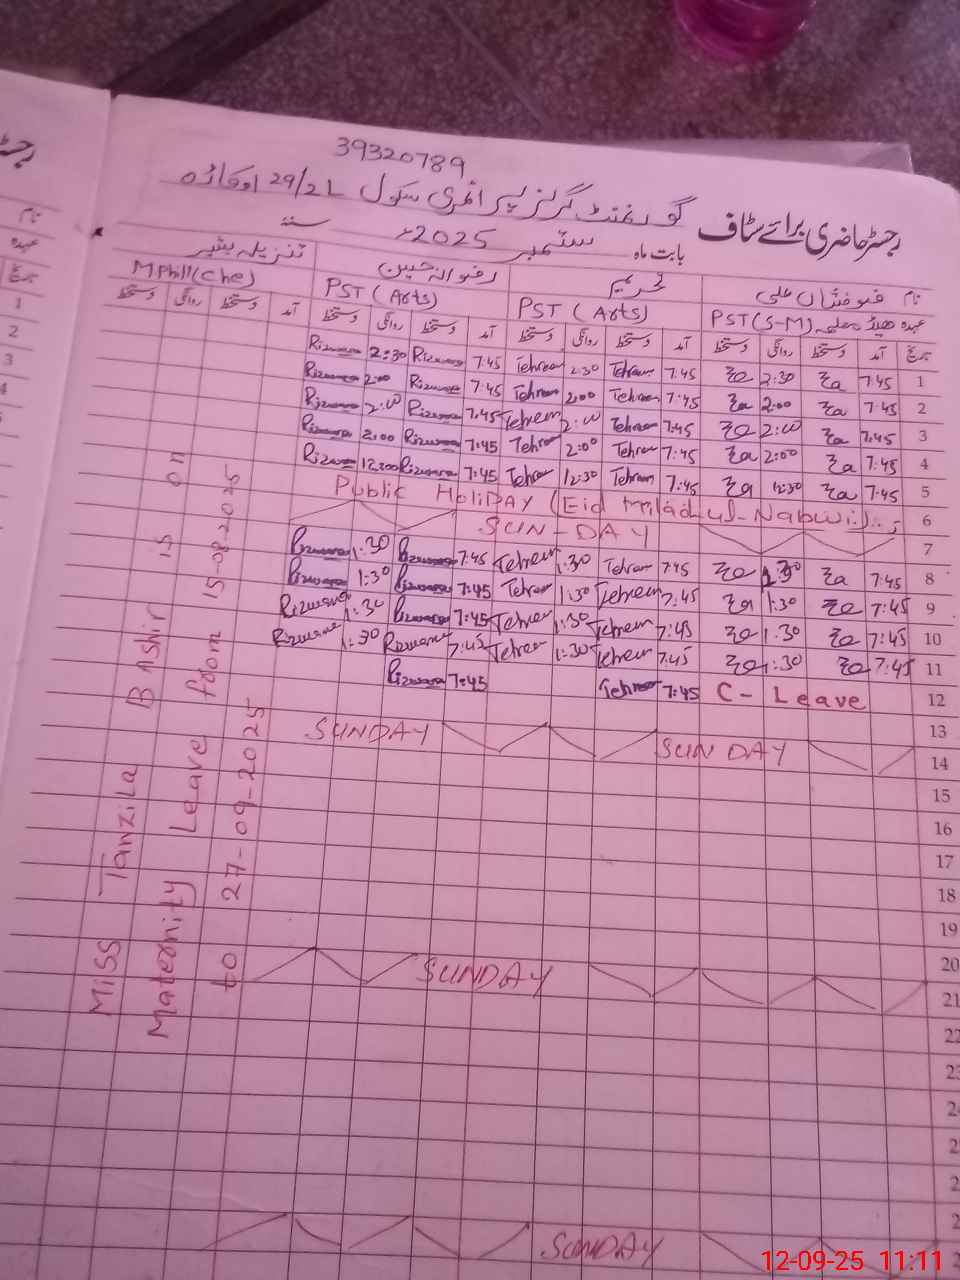 39320789
گورنمنٹ گرلز پرائمری سکول 29/2L اوکاڑہ
رجسٹر حاضری برائے سٹاف
بابت ماہ ستمبر 2025ء سنہ
نام تحریم رضوانہ حسین تنزیلہ بشیر
عہدہ ہیڈ معلمہ PST(S-M) PST (Arts) PST (Arts) MPhill(Che)
تاریخ آمد دستخط روانگی دستخط آمد دستخط روانگی دستخط آمد دستخط روانگی دستخط آمد دستخط روانگی دستخط
Rizwana 2:30 Rizwana 7:45 Tehreem 2:30 Tehreem 7:45 2:30 7:45 1
Rizwana 2:00 Rizwana 7:45 Tehreem 2:00 Tehreem 7:45 2:00 7:45 2
Rizwana 2:00 Rizwana 7:45 Tehreem 2:00 Tehreem 7:45 2:00 7:45 3
Rizwana 2:00 Rizwana 7:45 Tehreem 2:00 Tehreem 7:45 2:00 7:45 4
Rizwana 12:30 Rizwana 7:45 Tehreem 12:30 Tehreem 7:45 12:30 7:45 5
Public HoliDAY (Eid Milad ul-Nabwi 6
SUN-DAY 7
Rizwana 1:30 Rizwana 7:45 Tehreem 1:30 Tehreem 7:45 1:30 7:45 8
Rizwana 1:30 Rizwana 7:45 Tehreem 1:30 Tehreem 7:45 1:30 7:45 9
Rizwana 1:30 Rizwana 7:45 Tehreem 1:30 Tehreem 7:45 1:30 7:45 10
Rizwana 1:30 Rizwana 7:45 Tehreem 1:30 Tehreem 7:45 1:30 7:45 11
Rizwana 7:45 Tehreem 7:45 C- Leave 12
13
SUNDAY SUNDAY 14
15
16
17
18
19
20
SUNDAY 21
22
SUNDAY
Miss Tanzila BAshir is on
Maternity Leave from 15-08-2025
to 27-09-2025
12-09-25 11:11